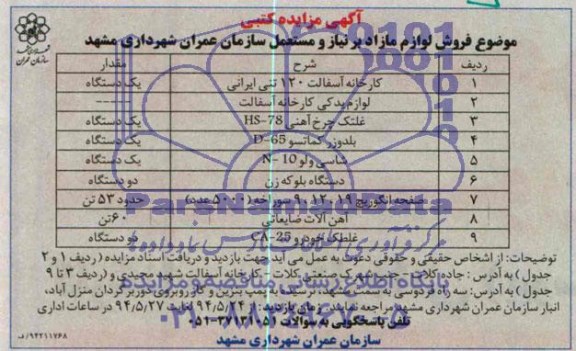 آگهی مزایده کتبی
موضوع فروش لوازم مازاد بر نیاز و مستعمل سازمان عمران شهرداری مشهد
ردیف شرح مقدار
۱ کارخانه آسفالت ۱۲۰ تنی ایرانی یک دستگاه
۲ لوازم یدکی کارخانه آسفالت ------
۳ غلتک چرخ آهنی HS-78 یک دستگاه
۴ بلدوزر کماتسو D-65 یک دستگاه
۵ شاسی ولو N-10 یک دستگاه
۶ دستگاه بلوکه زن دو دستگاه
۷ صفحه انگوریج ۱۹، ۱۲، ۹ سوراخه (۵۰۰۰ عدد) حدود ۵۳ تن
۸ آهن آلات ضایعاتی ۶۰ تن
۹ غلطک خودرو CA-25 دو دستگاه
توضیحات: از اشخاص حقیقی و حقوقی دعوت به عمل می آید جهت بازدید و دریافت اسناد مزایده (ردیف ۱ و ۲
جدول) به آدرس: جاده کلات - جنب شهرک صنعتی کلات - کارخانه آسفالت شهید مجیدی و (ردیف ۳ تا ۹
جدول) به آدرس: سه راه فردوسی به سمت مشهد، نرسیده به پمپ بنزین و کارروبروی دوربرگردان منزل آباد،
انبار سازمان عمران شهرداری مشهد مراجعه نمایند. زمان بازدید: از ۹۴/۵/ لغایت ۹۴/۵/۲۷ در ساعات اداری
تلفن پاسخگویی به سوالات ۰۵۱-۳۷۱۳۴۱۵۱
سازمان عمران شهرداری مشهد
۹۴۲۱۱۷۶۸/ف
ParsNamadData
پایگاه اطلاع رسانی مناقصه و مزایده